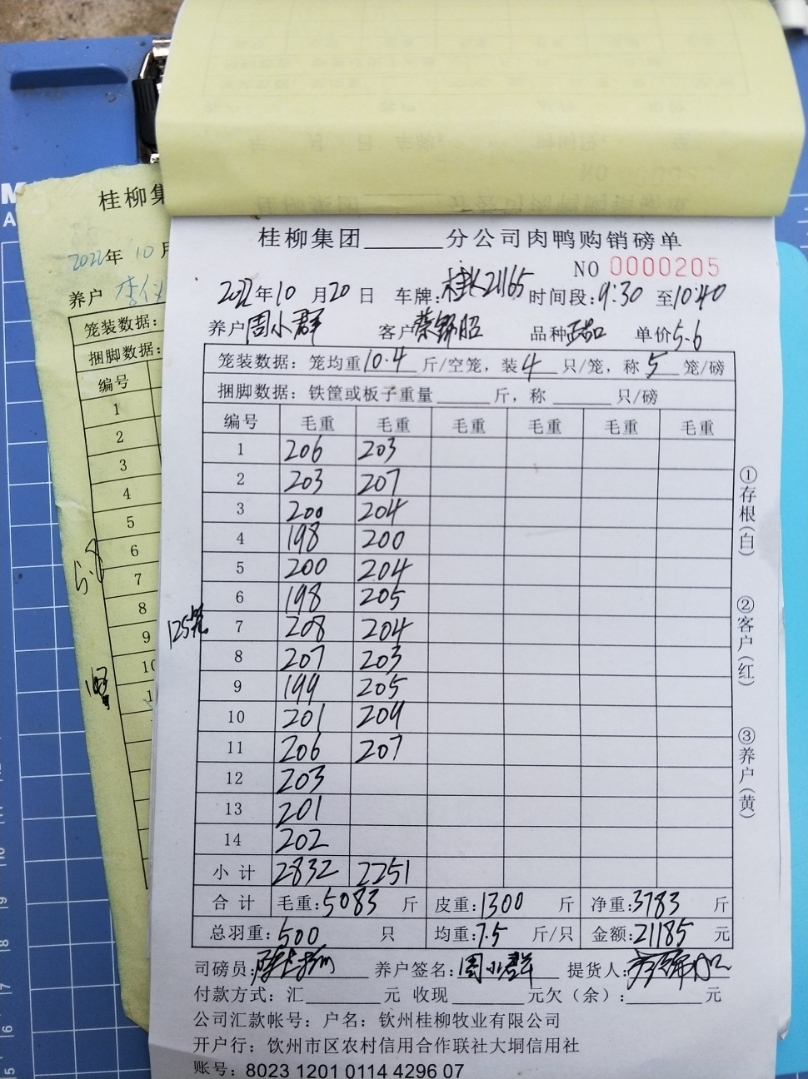 桂柳集团______分公司肉鸭购销磅单
NO 0000205
2022年10月20日 车牌: 时间段:9:30至10:40
养户周小群 客户 品种 单价5.6
笼装数据:笼均重10.4斤/空笼,装4只/笼,称5笼/磅
捆脚数据:铁筐或板子重量______斤,称______只/磅
编号 毛重 毛重 毛重 毛重 毛重 毛重
1 206 203
2 203 207
3 200 204
4 198 200
5 200 204
6 198 205
7 208 204
8 207 203
9 199 205
10 201 209
11 206 207
12 203
13 201
14 202
小计 2832 2251
合计 毛重:5083斤 皮重:1300斤 净重:3783斤
总羽重:500只 均重:7.5斤/只 金额:21185元
司磅员: 养户签名:周小群 提货人:
付款方式:汇______元 收现______元欠(余):______元
公司汇款帐号:户名:钦州桂柳牧业有限公司
开户行:饮州市区农村信用合作联社大垌信用社
账号:8023 1201 0114 4296 07
①存根(白)
②客户(红)
③养户(黄)
125笼
桂柳集
2022年10月
养户
笼装数据:
捆脚数据:
编号
1
2
3
4
5
6
7
8
9
10